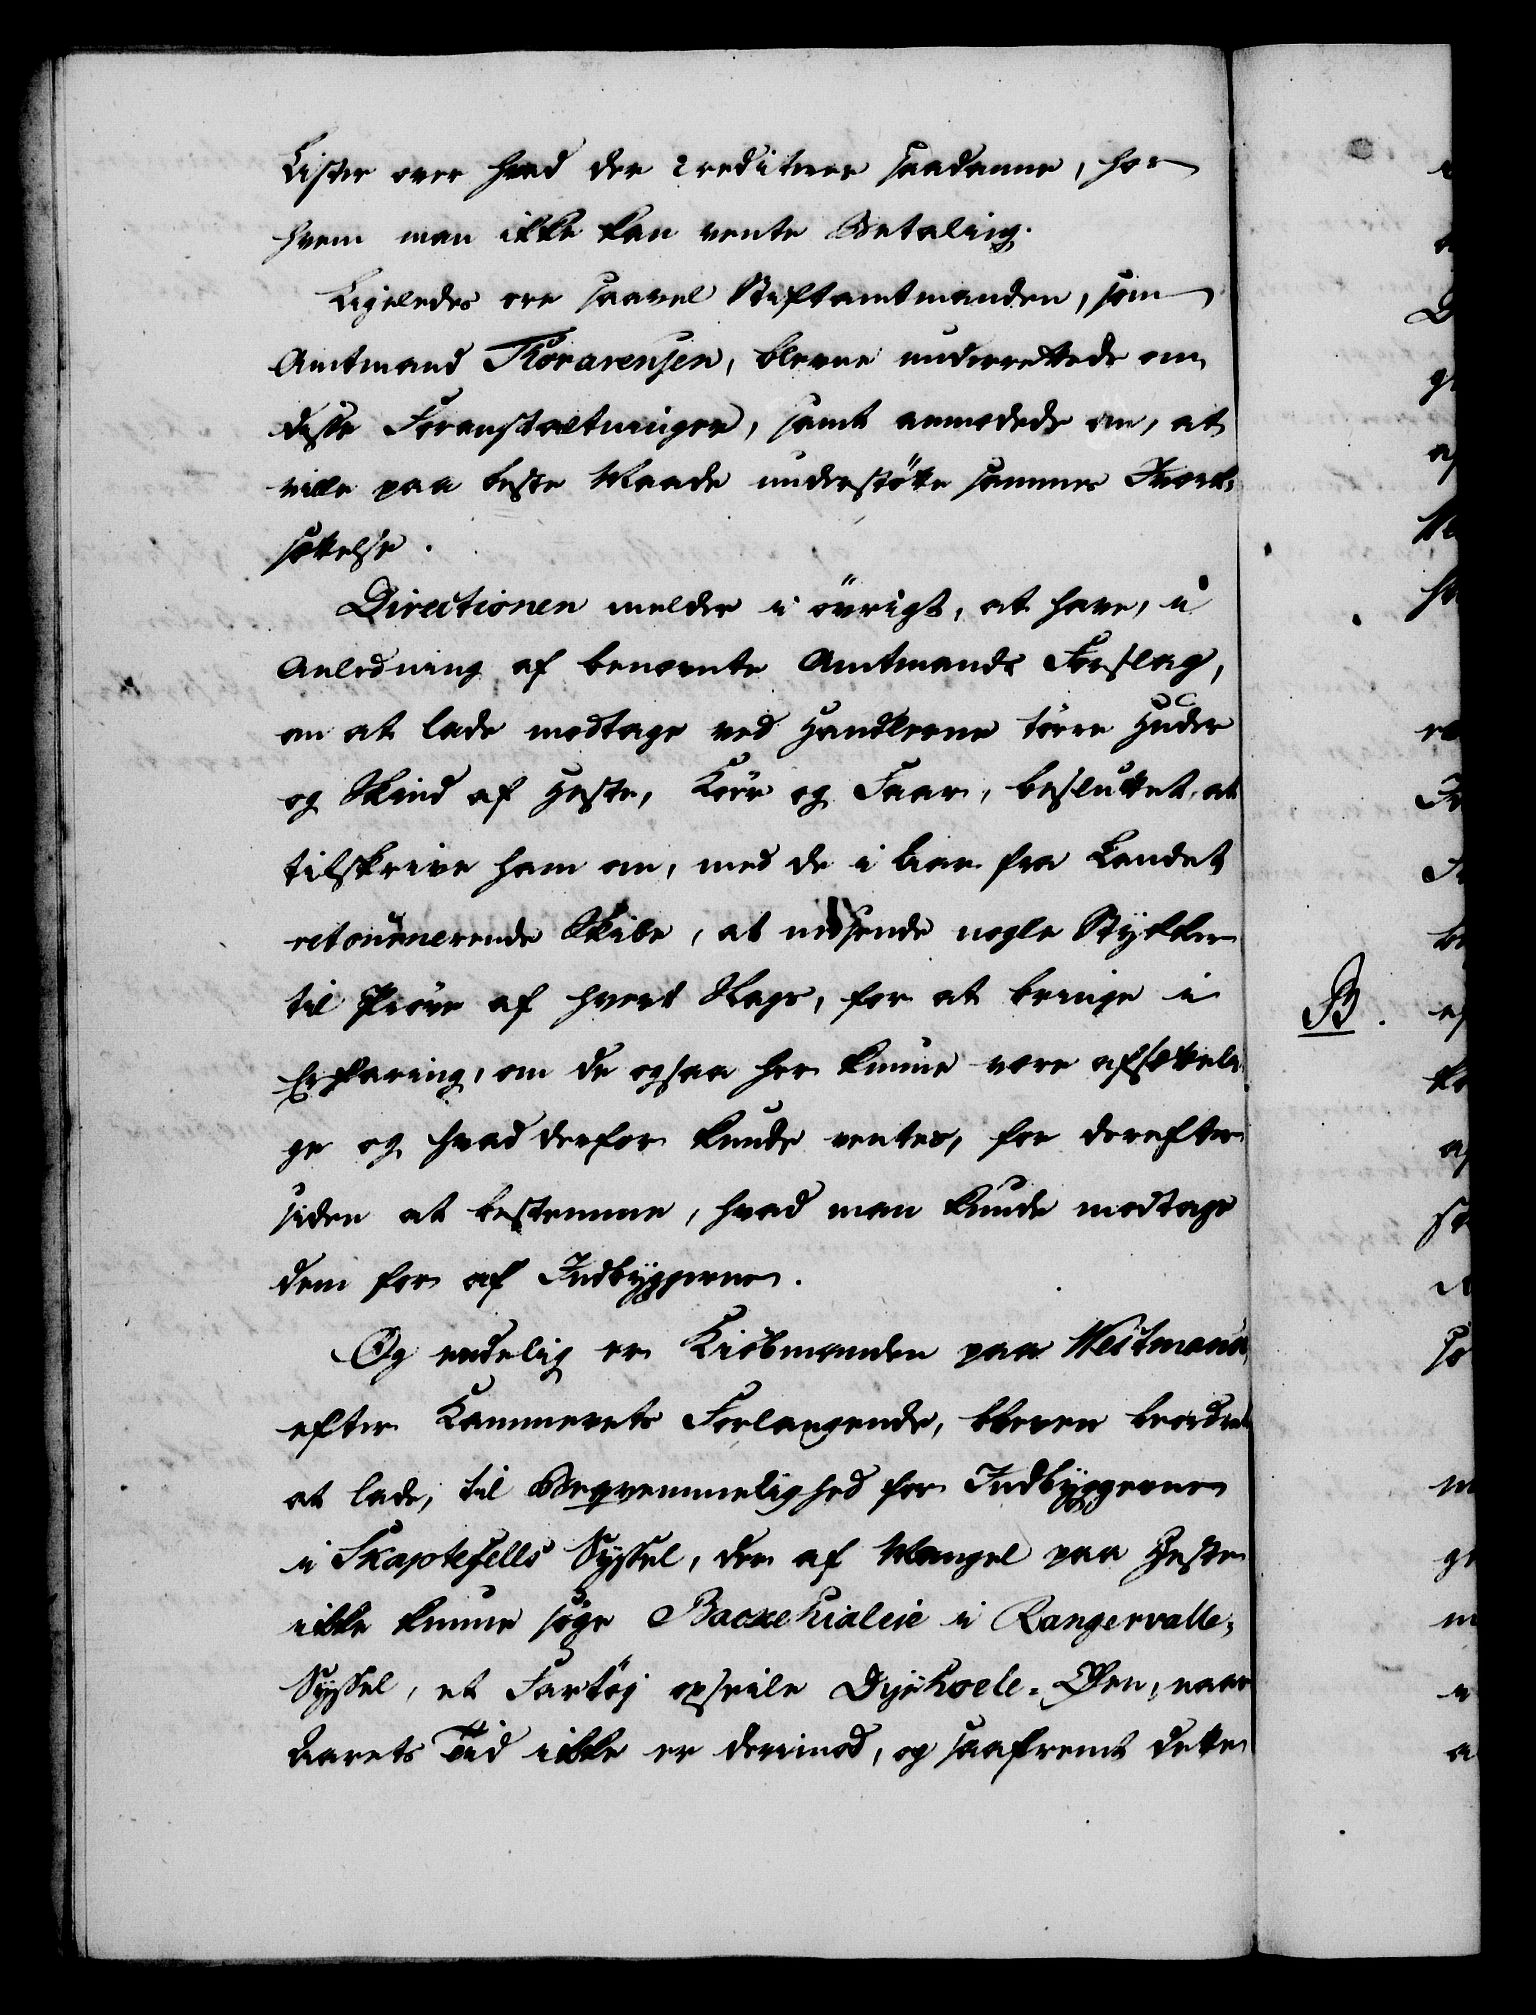 Lister over hvad der crediteres saadanne, hos
hvem man ikke kan vente Betaling.
Ligeledes ere saavel Stiftamtmanden, som
Amtmand Thorarensen, blevne underrettede om
disse Foranstaltninger, samt anmodede om, at
ville paa beste Maade understötte sammes Iværk-
sættelse.
Directionen melder i övrigt, at have, i
Anledning af benævnte Amtmands Forslag,
om at lade modtage ved Handlerne törre Huder
og Skind af Heste, Köer og Faar, besluttet, at
tilskrive ham om, med de i Aar fra Landet
retournerende Skibe, at nedsende nogle Stykker
til Pröve af hvert Slags, for at bringe i
Erfaring, om de ogsaa her kunne være afsætteli-
ge og hvad derfor kunde ventes, for derefter
siden at bestemme, hvad man kunde modtage
dem for af Indbyggerne.
Og endelig er Kiöbmanden paa Westmanöe,
efter Kammerets Forlangende, bleven beordret
at lade, til Beqvemmelighed for Indbyggerne
i Skaptefells Syssel, der af Mangel paa Heste
ikke kunne söge Backehialeie i Rangervalle-
Syssel, et Fartöj opseile Dyrhoele-Öen, naar
Aarets Tid ikke er derimod, og saafremt dette
B.